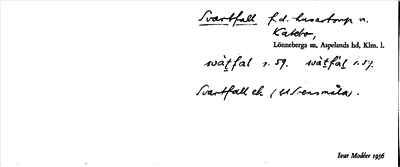 Svartfall f.d. husartorp u.
Kattbo,
Lönneberga sn, Aspelands hd, Klm. l.
svat̠fal s. 59. svat̠fal s. 57.
Svartfall ek. (U Svensmåla).
Ivar Modéer 1936